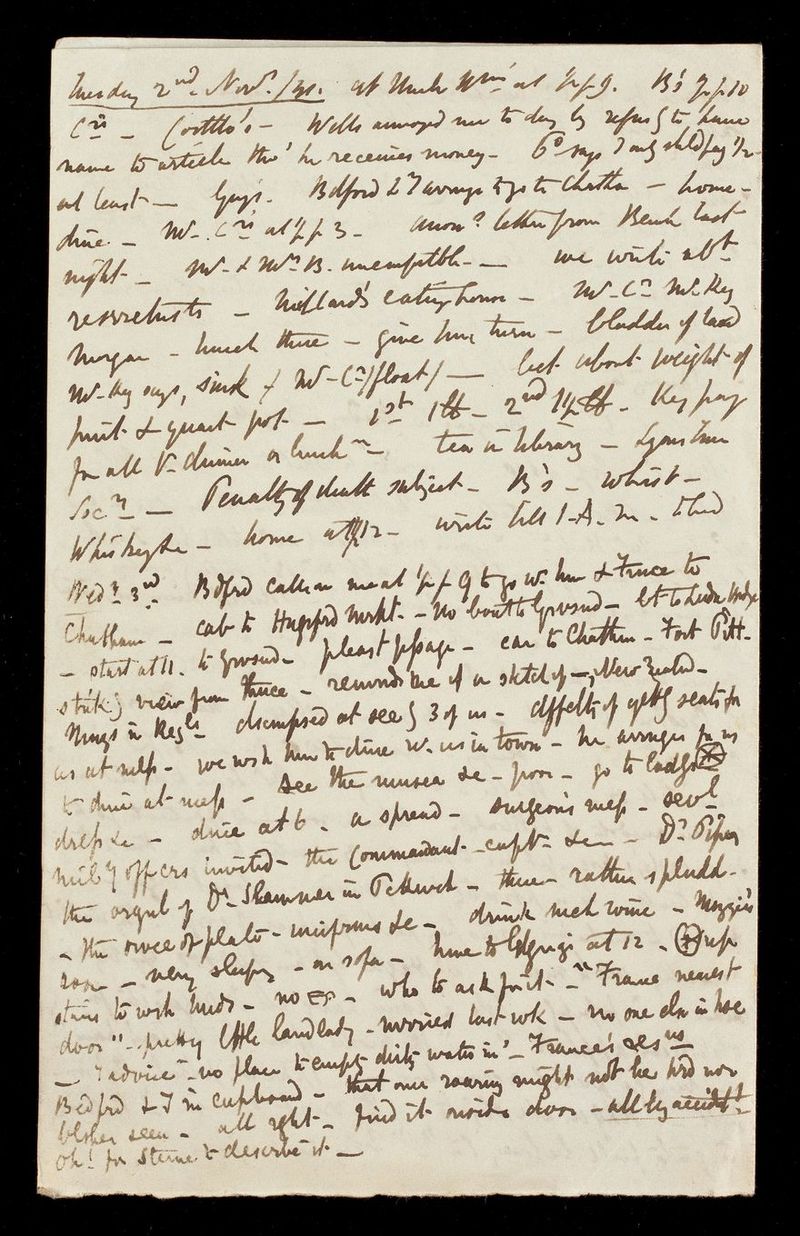 Tuesday 2nd Novr. /41. at Uncle Wms at ½ p 9. B's ½ p 10
Crs - Costtlo's - Wills annoyed me to day by refusg to have
name to article tho' he receives money - Go says I only shld pay ½
at least - Guys. Bdford & I arrange to go to Chatha - home -
dine - Mr. Crs at ½ p 3 - anons letter from last
night - Mr. & Mrs B. - we write abt
- eating house - Mr. Cr Mr. Key
Morgan - lunch there - give him turn - bladder of lard
Mr. Key says, sink / Mr - Cr /float/ - bet about weight of
pint & quart pot - 1st 1 lb - 2nd 1½ lb - Key pay
for all dinner or lunchn - tea in library -
Socy - Penalty of death subject - B's - whist -
Whiskey &c - home at ½ 12 - write till 1 A.M. - tired
Wedy 3rd Bdford calls on me at ½ p 9 to go w. him & France to
Chatham - cab to Hugrfrd mrkt - No boat to Grvsnd -
- start at 11. to Grvsnd - pleast pssage - car to Chathm - Fort Pitt -
striking view from thence - reminds me of a sketch of - New Zealnd -
things in Regls - at seeg 3 of us - diffclty of gettg seats for
us at mess - we wish him to dine w. us in town - he arranges for us
to dine at mess - see the musea &c - poor - go to lodgs
dress &c - dine at 6 - a spread - surgeons mess - sevl
mility offcrs invited - the Commandant - capt - &c - Dr.
the of Dr. in Pickwck - there - rather splndd -
- the sivce of plate - uniforms &c - drink much wine -
room - very sleepy - on sofa - home to ldgngs at 12 - up
stairs to wsh hnds - no - who to ask for it - "France nearest
door" - pretty lttle landlady - married last wk - no one else in hse
- I advice - no place to empty dirty water in" - France's us
Bedford & I in cupboard - that our roaring might not be hrd nor
blshes seen - all rght - find it outside door - all by accidt
Oh! for Sterne to describe it -